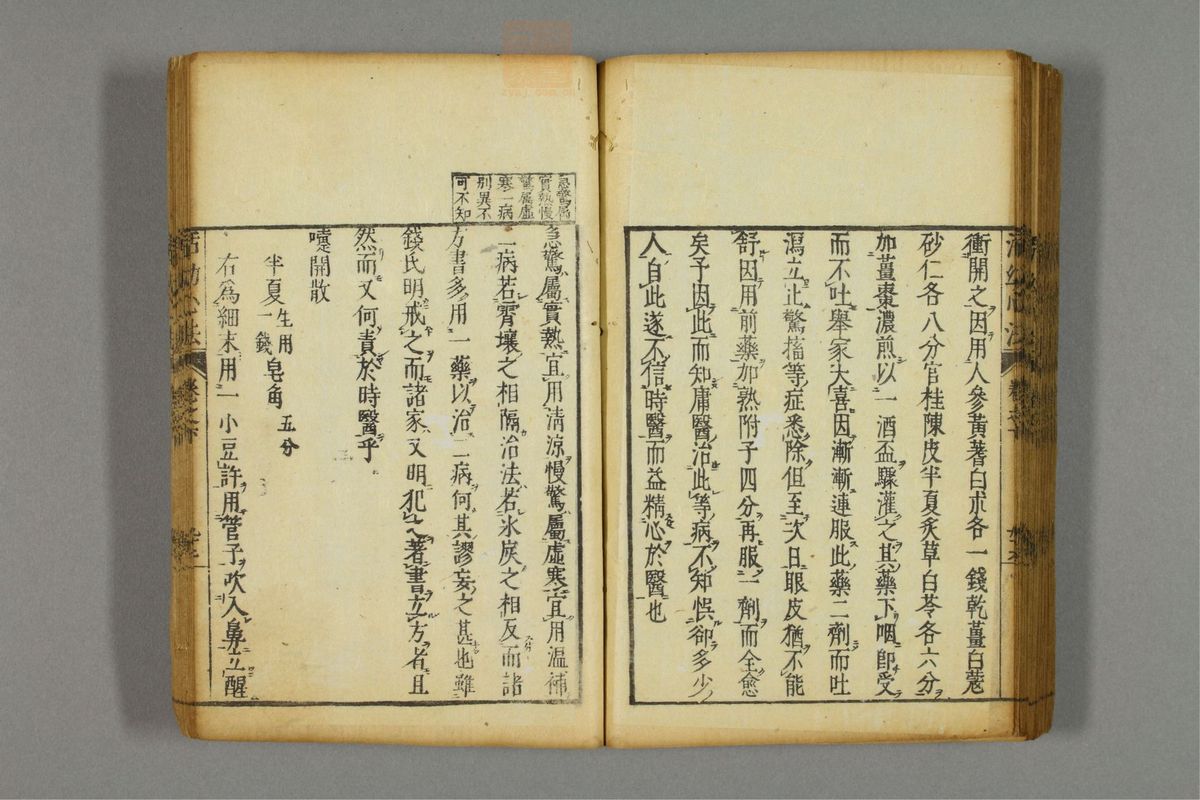 衝開之因用人參黃蓍白朮各一錢乾薑白蔻
砂仁各八分官桂陳皮半夏炙草白苓各六分
加薑棗濃煎以一酒盃驟灌之其藥下咽即受
而不吐舉家大喜因漸漸連服此藥二劑而吐
瀉立止驚搐等症悉除但至次日眼皮猶不能
舒因用前藥加熟附子四分再服一劑而全愈
矣予因此而知庸醫治此等病不知悞卻多少
人自此遂不信時醫而益精心於醫也
急驚屬
實熱慢
驚屬虛
寒二病
別異不
可不知
急驚屬實熱宜用清涼慢驚屬虛寒宜用溫補
二病若霄壤之相隔治法若氷炭之相反而諸
方書多用一藥以治二病何其謬妄之甚也雖
錢氏明戒之而諸家又明犯之著書立方者且
然而又何責於時醫乎
嚏開散
半夏生用一錢皂角五分
右為細末用一小豆許用管子吹入鼻立醒
活幼心法
卷之下